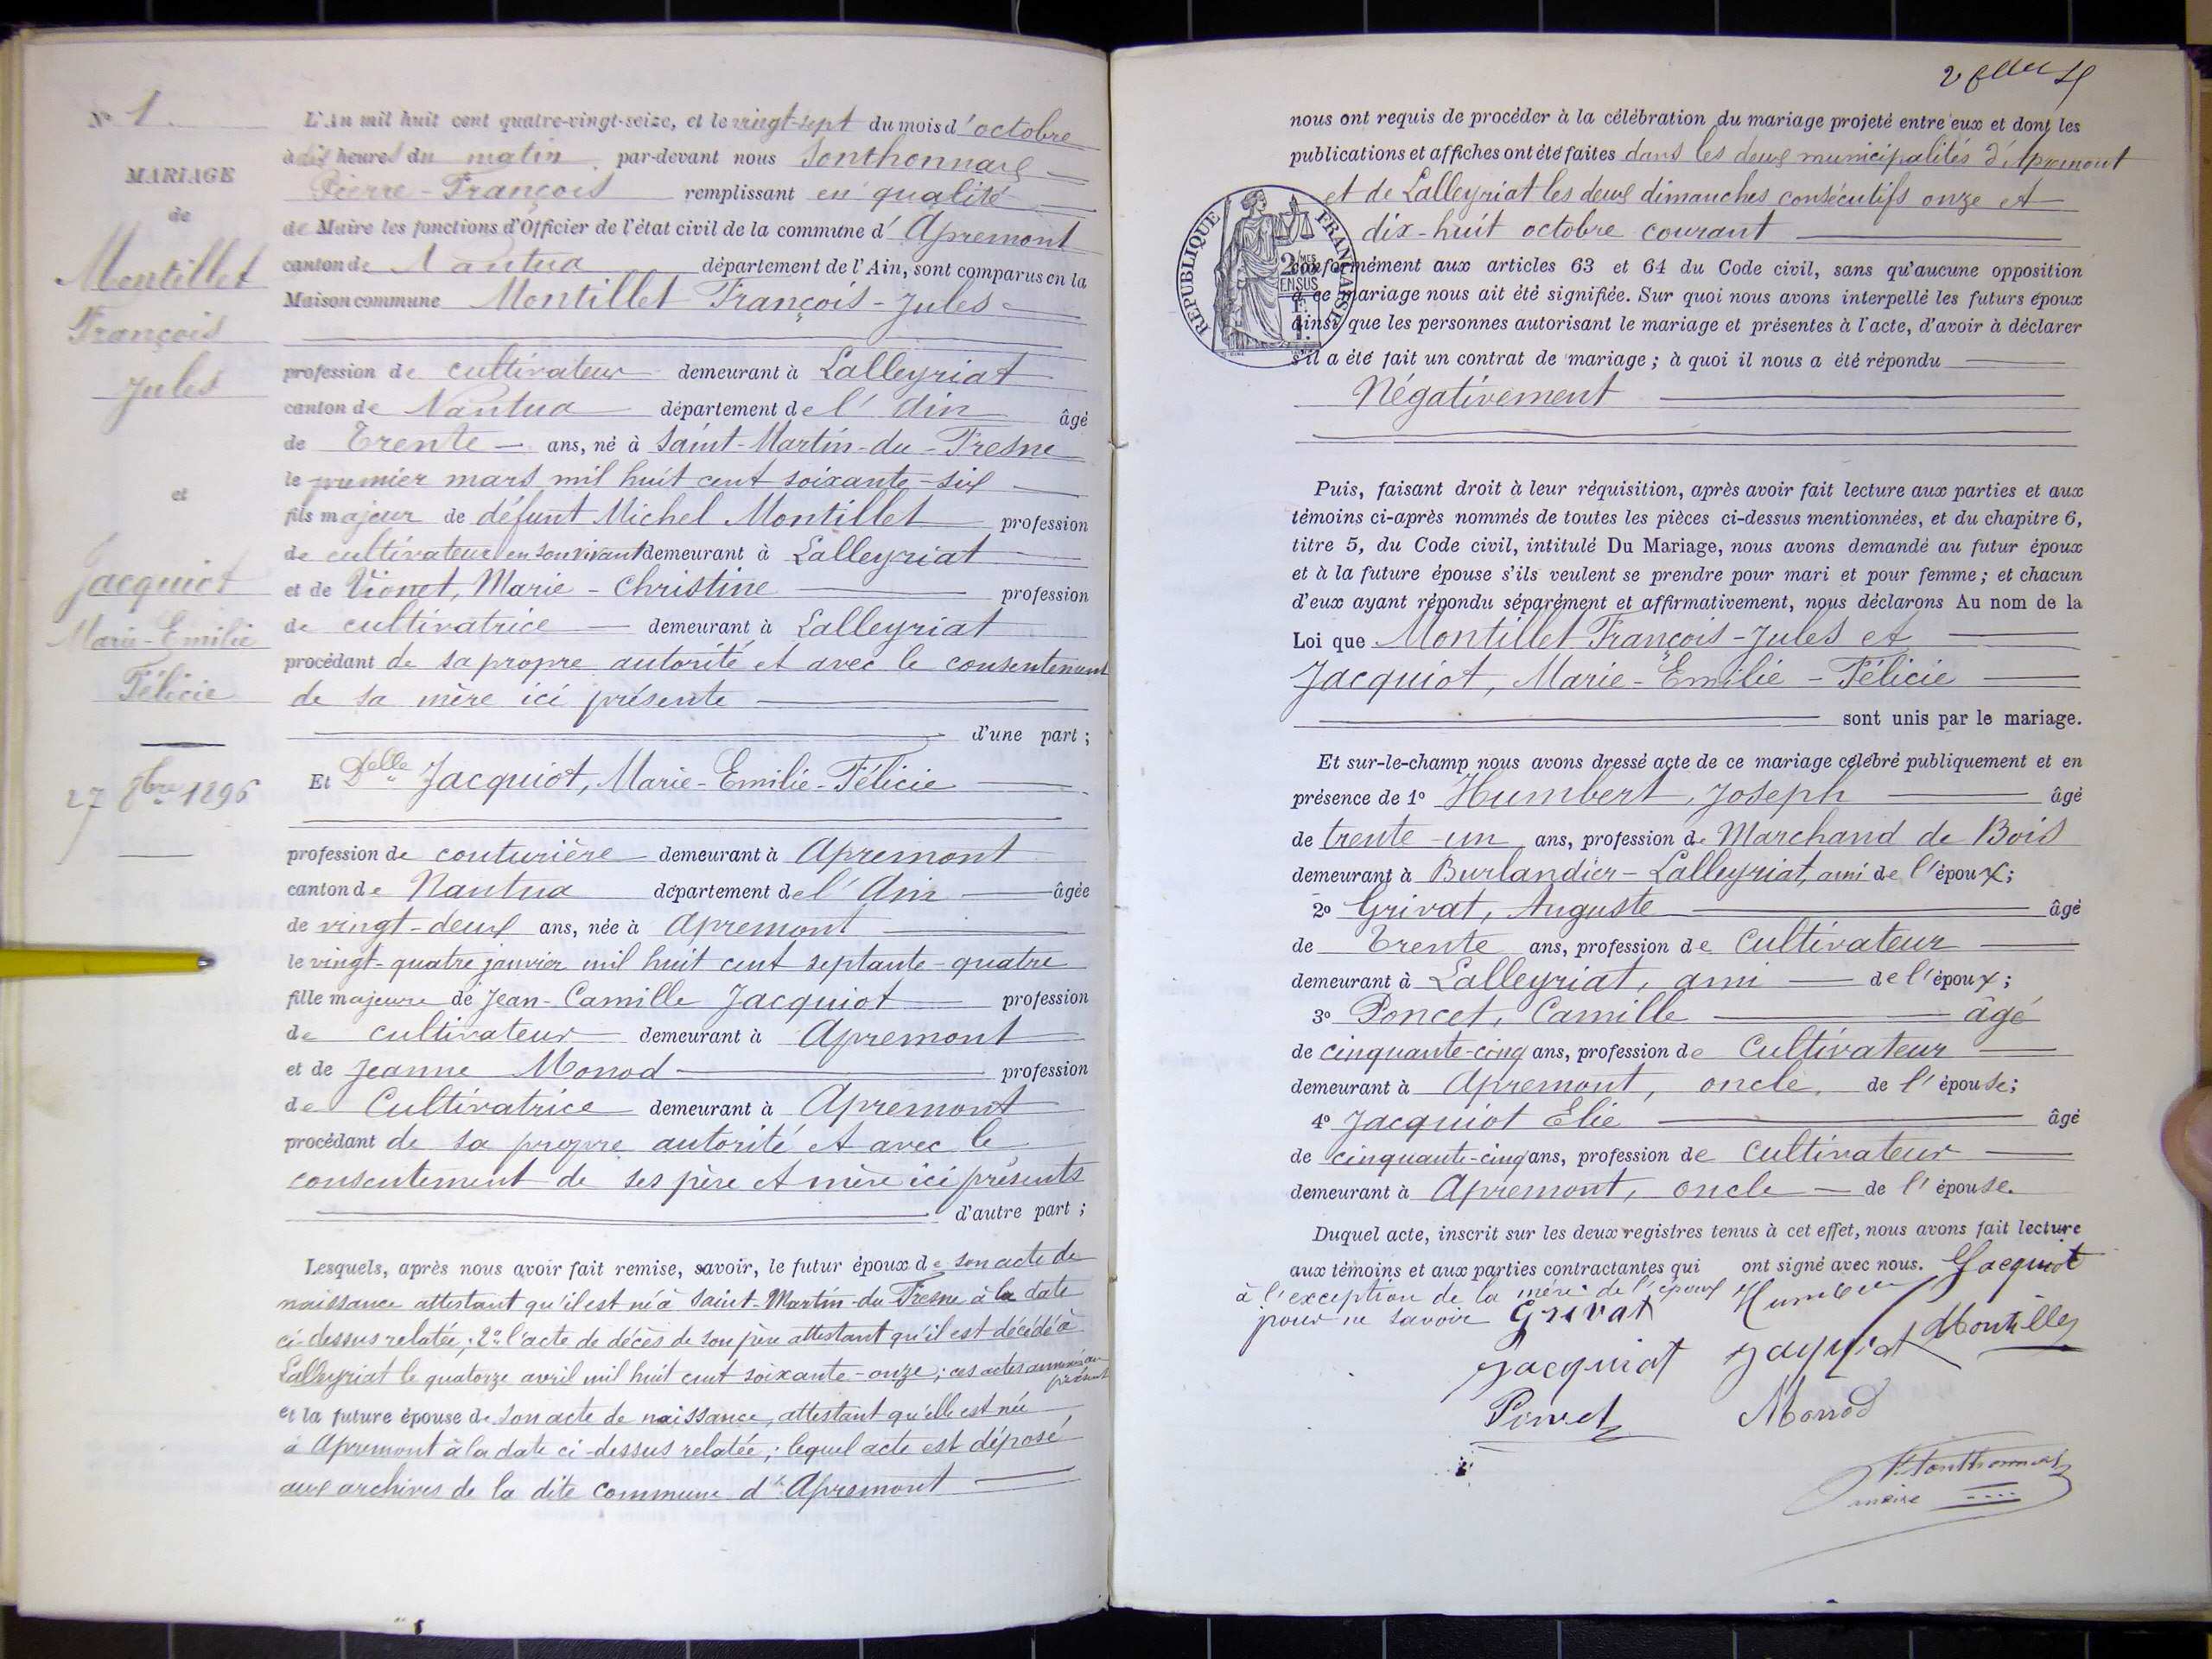 N° 1
MARIAGE
de
Montillet
François
Jules
et
Jacquiot
Marie-Emilie
Félicie
27 8bre 1896
L'An mil huit cent quatre-vingt-seize, et le vingt-sept du mois d'octobre
à dix heures du matin par-devant nous Sonthonnax
Pierre-François remplissant en qualité
de Maire les fonctions d'Officier de l'état civil de la commune d'Apremont
canton de Nantua département de l'Ain, sont comparus en la
Maison commune Montillet François-Jules
profession de cultivateur demeurant à Lalleyriat
canton de Nantua département de l'Ain âgé
de Trente ans, né à Saint-Martin-du-Fresne
le premier mars mil huit cent soixante-six
fils majeur de défunt Michel Montillet profession
de cultivateur en son vivant demeurant à Lalleyriat
et de Vionet, Marie-Christine profession
de cultivatrice demeurant à Lalleyriat
procédant de sa propre autorité et avec le consentement
de sa mère ici présente
d'une part;
Et Delle Jacquiot, Marie-Emilie-Félicie
profession de couturière demeurant à Apremont
canton de Nantua département de l'Ain âgée
de vingt-deux ans, née à Apremont
le vingt-quatre janvier mil huit cent septante-quatre
fille majeure de Jean-Camille Jacquiot profession
de cultivateur demeurant à Apremont
et de Jeanne Monod profession
de Cultivatrice demeurant à Apremont
procédant de sa propre autorité et avec le
consentement de ses père et mère ici présents
d'autre part;
Lesquels, après nous avoir fait remise, savoir, le futur époux de son acte de
naissance attestant qu'il est né à Saint-Martin-du-Fresne à la date
ci-dessus relatée; 2° l'acte de décès de son père attestant qu'il est décédé à
Lalleyriat le quatorze avril mil huit cent soixante-onze; ces actes annexés au
présent
et la future épouse de son acte de naissance, attestant qu'elle est née
à Apremont à la date ci-dessus relatée; lequel acte est déposé
aux archives de la dite commune d'Apremont
nous ont requis de procéder à la célébration du mariage projeté entre eux et dont les
publications et affiches ont été faites dans les deux municipalités d'Apremont
et de Lalleyriat les deux dimanches consécutifs onze et
dix-huit octobre courant
RÉPUBLIQUE FRANÇAISE
conformément aux articles 63 et 64 du Code civil, sans qu'aucune opposition
à ce mariage nous ait été signifiée. Sur quoi nous avons interpellé les futurs époux
ainsi que les personnes autorisant le mariage et présentes à l'acte, d'avoir à déclarer
s'il a été fait un contrat de mariage; à quoi il nous a été répondu
Négativement
Puis, faisant droit à leur réquisition, après avoir fait lecture aux parties et aux
témoins ci-après nommés de toutes les pièces ci-dessus mentionnées, et du chapitre 6,
titre 5, du Code civil, intitulé Du Mariage, nous avons demandé au futur époux
et à la future épouse s'ils veulent se prendre pour mari et pour femme; et chacun
d'eux ayant répondu séparément et affirmativement, nous déclarons Au nom de la
Loi que Montillet François-Jules et
Jacquiot, Marie-Emilie-Félicie
sont unis par le mariage.
Et sur-le-champ nous avons dressé acte de ce mariage célébré publiquement et en
présence de 1° Humbert, Joseph âgé
de trente-un ans, profession de Marchand de Bois
demeurant à Burlandier-Lalleyriat, ami de l'époux;
2° Grivat, Auguste âgé
de Trente ans, profession de Cultivateur
demeurant à Lalleyriat, ami de l'époux;
3° Poncet, Camille âgé
de cinquante-cinq ans, profession de Cultivateur
demeurant à Apremont, oncle de l'épouse;
4° Jacquiot Elie âgé
de cinquante-cinq ans, profession de Cultivateur
demeurant à Apremont, oncle de l'épouse.
Duquel acte, inscrit sur les deux registres tenus à cet effet, nous avons fait lecture
aux témoins et aux parties contractantes qui ont signé avec nous. Jacquiot
à l'exception de la mère de l'époux Humbert
pour ne savoir Grivat
Montillet
Jacquiot Jacquiot
Poncet Monod
P. Sonthonnax
maire